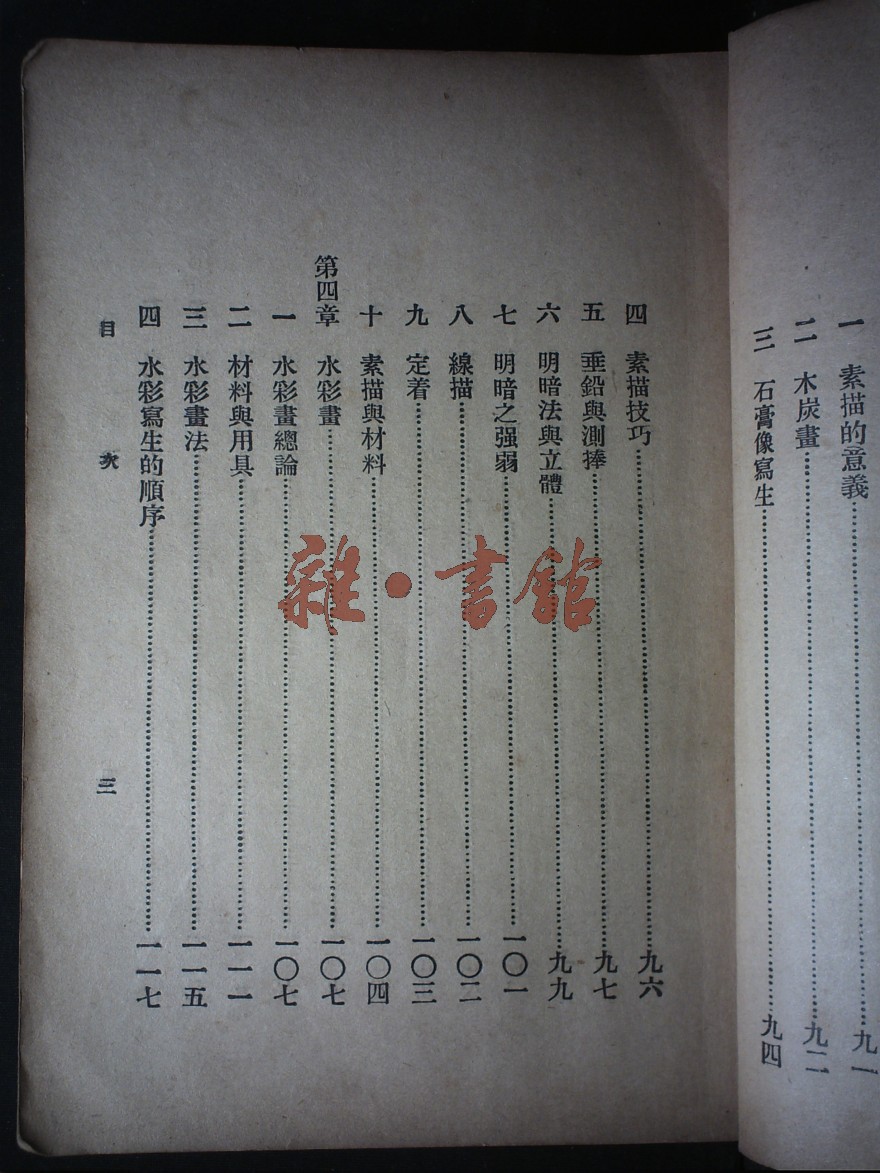 一　素描的意義……九一
二　木炭畫……九二
三　石膏像寫生……九四
四　素描技巧……九六
五　垂鉛與測捧……九七
六　明暗法與立體……九九
七　明暗之强弱……一〇一
八　線描……一〇二
九　定着……一〇三
十　素描與材料……一〇四
第四章　水彩畫……一〇七
一　水彩畫總論……一〇七
二　材料與用具……一一一
三　水彩畫法……一一五
四　水彩寫生的順序……一一七
目次　三
雜·書館